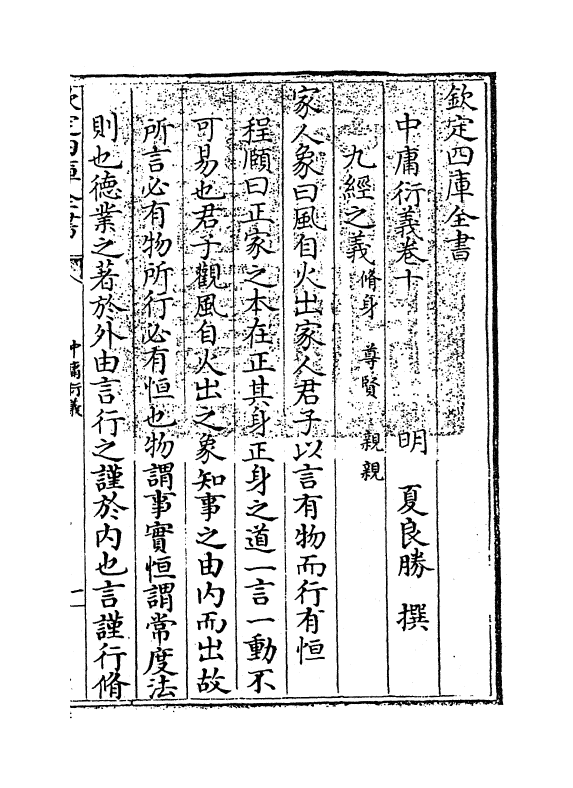 欽定四庫全書
中庸衍義卷十
明　夏良勝　撰
九經之義　脩身　尊賢　親親
家人象曰風自火出家人君子以言有物而行有恒
程頤曰正家之本在正其身正身之道一言一動不
可易也君子觀風自火出之象知事之由内而出故
所言必有物所行必有恒也物謂事實恒謂常度法
則也德業之著於外由言行之謹於内也言謹行脩
欽定四庫全書
中庸衍義
一